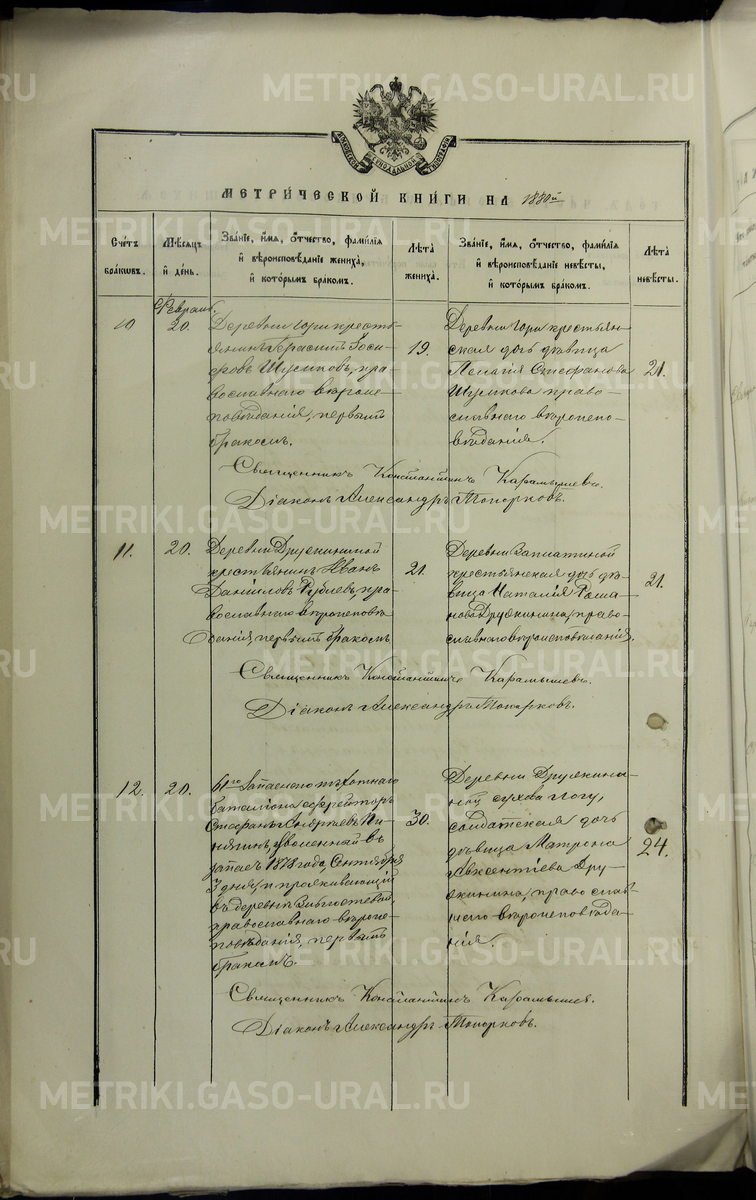 METRIKI.GASO-URAL.RU
МЕТРИ́ЧЕСКОЙ КНИ́ГИ НА 1880й
Сче́тъ бра́ковъ.
Мѣ́сяцъ и҆ де́нь.
Зва́нїе, и҆́мя, ѻ҆́тчество, фами́лїя и҆ вѣроисповѣ́данїе жениха̀, и҆ кото́рымъ бра́комъ.
Лѣ́та жениха̀.
Зва́нїе, и҆́мя, ѻ҆́тчество, фами́лїя и҆ вѣроисповѣ́данїе невѣ́сты, и҆ кото́рымъ бра́комъ.
Лѣ́та невѣ́сты.
Февраль.
10
20.
Деревни Гори кресть-
янинъ Герасимъ Іоси-
фовъ Шумковъ, пра-
вославнаго вѣроис-
повѣданія, первымъ
бракомъ.
19.
Деревни Гори крестьян-
ская дочь дѣвица
Пелагія Стефанова
Шумкова право-
славнаго вѣроиспо-
вѣданія.
21.
Священникъ Константинъ Карамышевъ.
Діаконъ Александръ Топорковъ.
11.
20.
Деревни Дружининой
крестьянинъ Иванъ
Даніиловъ Рублевъ, пра-
вославнаго вѣроисповѣ-
данія, первымъ бракомъ
21.
Деревни Заплатиной
крестьянская дочь дѣ-
вица Наталія Рома-
нова Дружинина, право-
славнаго вѣроисповѣданія.
21.
Священникъ Константинъ Карамышевъ.
Діаконъ Александръ Топорковъ.
12.
20.
61го Запаснаго пѣхотнаго
баталіона ефрейторъ
Стефанъ Андреевъ Пи-
нягинъ, уволенный въ
запасъ 1878 года, Сентября
3 дня, и проживающій
въ деревни
православнаго вѣроис-
повѣданія, первымъ
бракомъ.
30.
Деревни Дружини-
ной Сухова логу,
солдатская дочь
дѣвица Матрона
Авксентіева Дру-
жинина, православ-
наго вѣроисповѣда-
нія.
24.
Священникъ Константинъ Карамышевъ.
Діаконъ Александръ Топорковъ.
METRIKI.GASO-URAL.RU